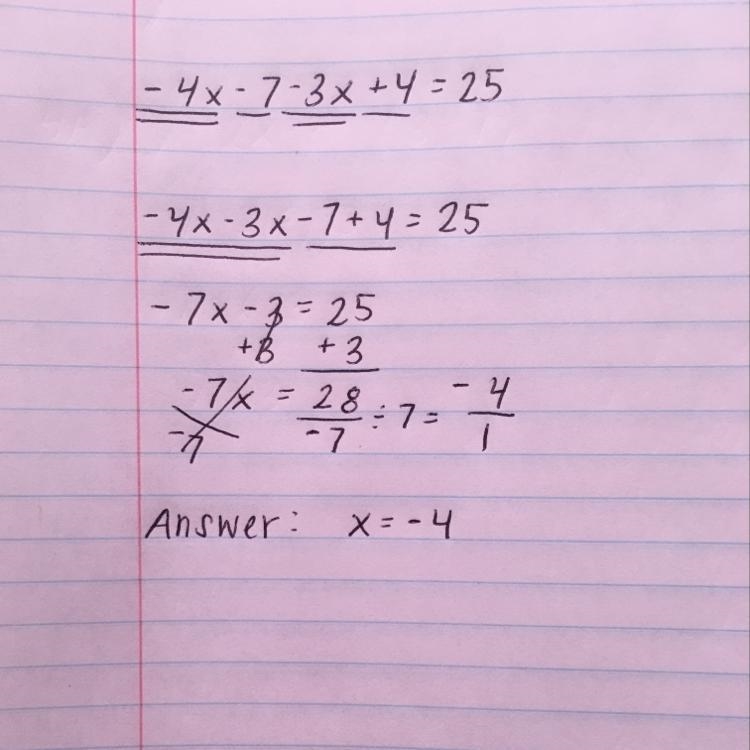 -4x-7-3x+4=25
-4x-3x-7+4=25
-7x-3=25
+3 +3
-7x = 28/-7 ÷ 7 = -4/1
-7
Answer: x=-4